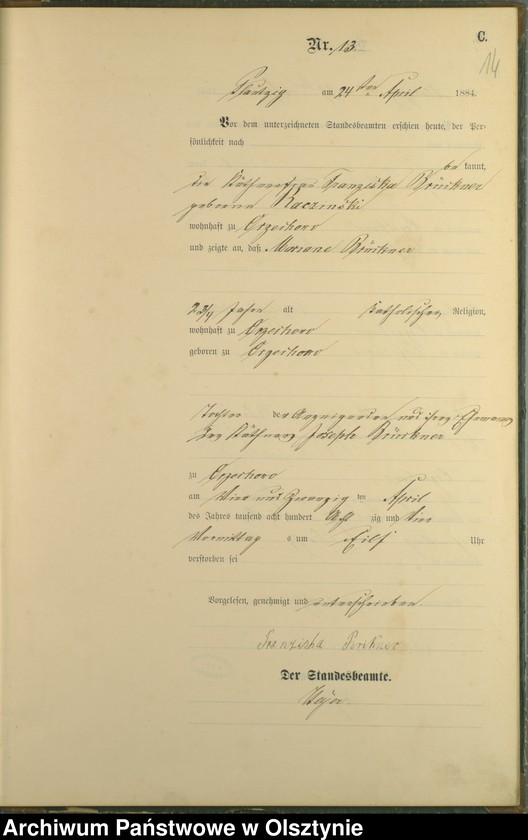 C.
14
Nr. 13.
Plautzig am 24ten April 1884.
Vor dem unterzeichneten Standesbeamten erschien heute, der Per-
sönlichkeit nach
be kannt,
die Käthnerfrau Franziska Brückner
geborene Raczinski
wohnhaft zu Orzechowo
und zeigte an, daß Mariane Brückner
Jahre alt katholischer Religion,
wohnhaft zu Orzechowo
geboren zu Orzechowo
Tochter der Anzeigenden und ihres Ehemanns
des Käthners Joseph Brückner
zu Orzechowo
am vier und zwanzig ten April
des Jahres tausend acht hundert acht zig und vier
Vormittag s um Eilf Uhr
verstorben sei
Vorgelesen, genehmigt und unterschrieben.
Franziska
Der Standesbeamte.
Archiwum Państwowe w Olsztynie